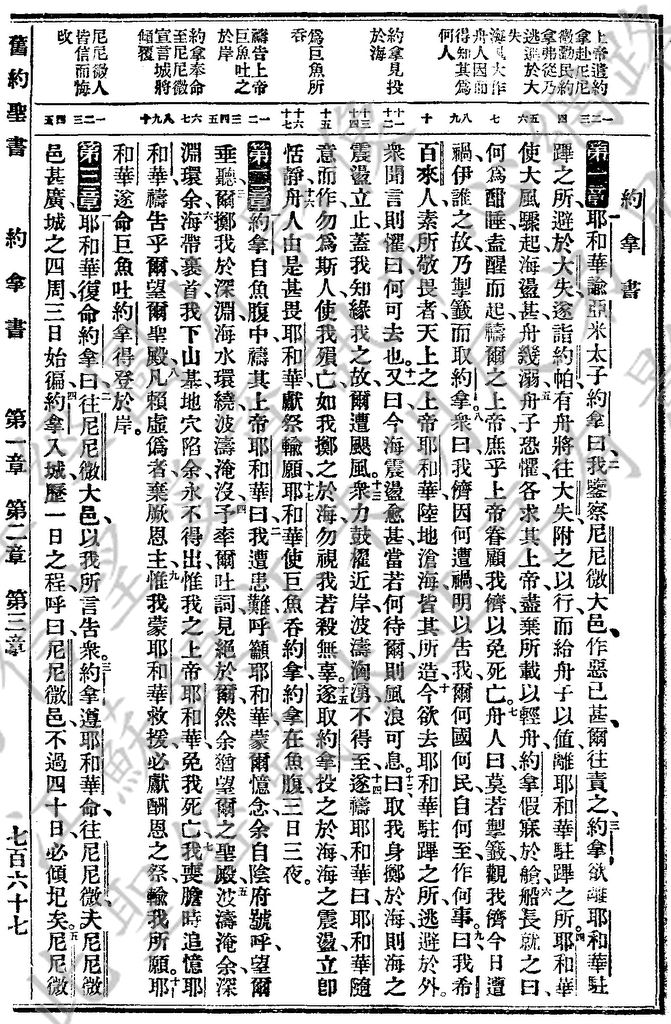 約拿書
上帝遣約
拿赴尼尼
微勸民約
拿弗從乃
逃遯於大
失
海風大作
舟人因而
得知其爲
何人
約拿見投
於海
爲巨魚所
吞
禱告上帝
巨魚吐之
於岸
約拿奉命
至尼尼微
宣言城將
傾覆
尼尼微人
皆信而悔
改
第一章耶和華諭亞米太子約拿曰、二我鑒察尼尼微大邑、作惡已甚、爾往責之、三約拿欲離耶和華駐
蹕之所、避於大失、遂詣約帕、有舟將往大失、附之以行、而給舟子以値、離耶和華駐蹕之所。四耶和華
使大風驟起、海盪甚、舟幾溺、五舟子恐懼、各求其上帝、盡棄所載以輕舟、約拿假寐於艙、六船長就之曰、
何爲酣睡、盍醒而起、禱爾之上帝、庶乎上帝眷顧我儕、以免死亡。七舟人曰、莫若掣籤、觀我儕今日遭
禍、伊誰之故、乃掣籤而取約拿、八衆曰、我儕因何遭禍、明以告我、爾何國何民、自何至、作何事。九曰、我希
百來人、素所敬畏者、天上之上帝耶和華、陸地滄海、皆其所造、十今欲去耶和華駐蹕之所、逃避於外、
衆聞言則懼、曰、何可去也。十一又曰、今海震盪愈甚、當若何待爾、則風浪可息。十二曰、取我身擲於海、則海之
震盪立止、蓋我知緣我之故、爾遭颶風。十三衆力鼓櫂近岸、波濤洶湧不得至、十四遂禱耶和華曰、耶和華隨
意而作、勿爲斯人使我殞亡、如我擲之於海、勿視我若殺無辜。十五遂取約拿投之於海、海之震盪、立卽
恬靜、十六舟人由是甚畏耶和華、獻祭輸願、十七耶和華使巨魚吞約拿、約拿在魚腹、三日三夜。
第二章約拿自魚腹中、禱其上帝耶和華曰、二我遭患難、呼籲耶和華、蒙爾憶念、余自陰府號呼、望爾
垂聽、三爾擲我於深淵、海水環繞、波濤淹沒、四予牽爾吐詞、見絕於爾、然余猶望爾之聖殿、五波濤淹余、深
淵環余、海帶裹首、六我下山基、地穴陷余、永不得出、惟我之上帝耶和華、免我死亡、七我喪膽時、追憶耶
和華、禱告乎爾、望爾聖殿、八凡賴虛僞者、棄厥恩主、九惟我蒙耶和華救援、必獻酬恩之祭、輸我所願。十耶
和華遂命巨魚、吐約拿得登於岸。
第三章耶和華復命約拿曰、二往尼尼微大邑、以我所言告衆、三約拿遵耶和華命、往尼尼微、夫尼尼微
邑甚廣、城之四周、三日始徧、四約拿入城、歷一日之程、呼曰、尼尼微邑、不過四十日、必傾圮矣。五尼尼微
舊約聖書 約拿書 第一章 第二章 第三章 七百六十七